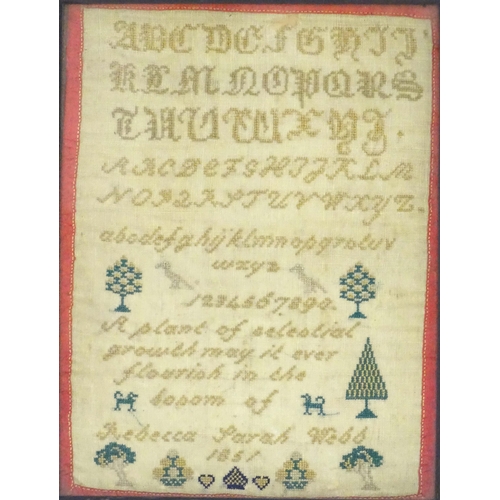 ABCDEFGHIJ
KLMNOPQRS
TUVWXYZ.
ABCDEFGHIJKLM
NOPQRSTUVWXYZ.
abcdefghijklmnopqrstuv
wxyz
1234567890.
A plant of celestial
growth may it ever
flourish in the
bosom of
Rebecca Sarah Webb
1851